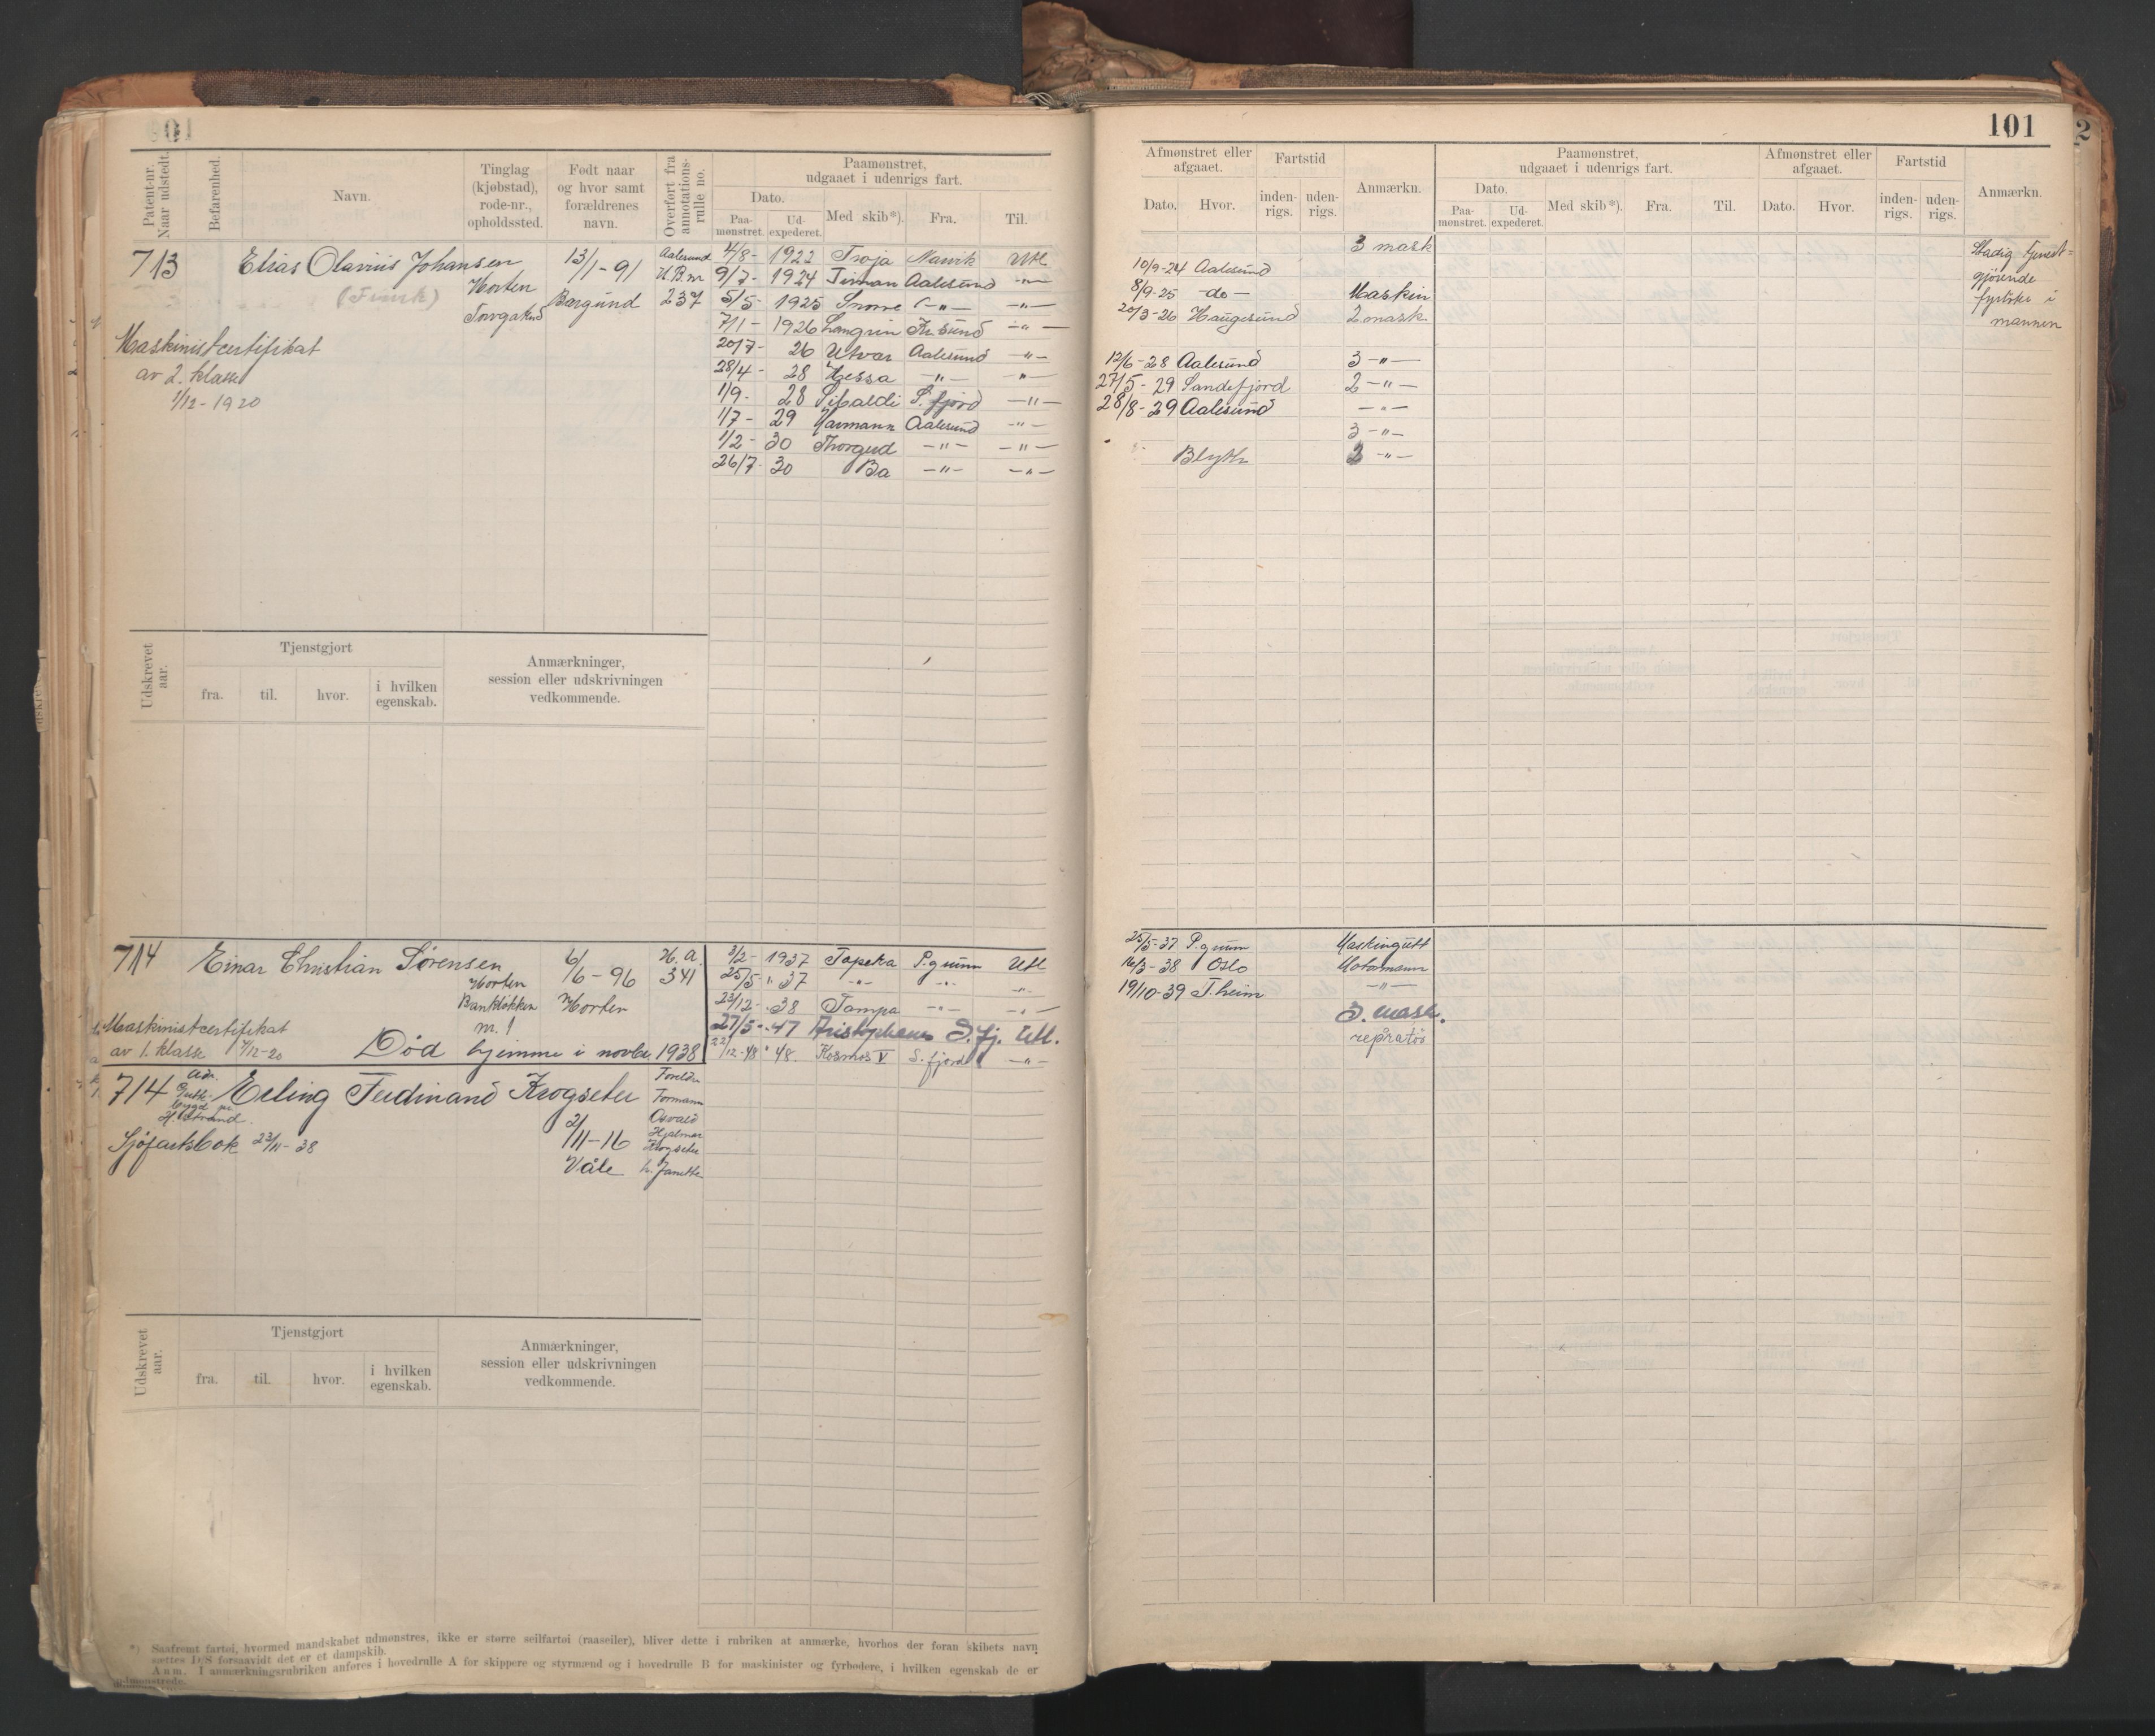 101
Patent-nr. Naar udstedt.
Befarenhed.
Navn.
Tinglag (kjøbstad), rode-nr., opholdssted.
Født naar og hvor samt forældrenes navn.
Overført fra annotations-rulle no.
Paamønstret, udgaaet i udenrigs fart.
Dato.
Paa-mønstret. Ud-expederet.
Med skib*).
Fra.
Til.
713 Elias Olavius Johansen
Horten
13/1-91
Borgund
Aalesund
237
Maskinistcertifikat
av 2. klasse
1/12-1920
4/8- 1922 Troja Narvik Utl
9/7- 1924 Timan Aalesund -"-
5/5- 1925 Snorre -"- -"-
7/1- 1926 Langrin Kr.sund -"-
20/7- 26 Utvær Aalesund -"-
28/4- 28 Hessa -"- -"-
1/9- 28 Sibaldi S.fjord -"-
1/7- 29 Havmann Aalesund -"-
1/2- 30 Thorgud -"- -"-
26/7- 30 Ba -"- -"-
Udskrevet aar.
Tjenstgjort
fra. til. hvor. i hvilken egenskab.
Anmærkninger, session eller udskrivningen vedkommende.
714 Einar Christian Sørensen
Horten
Bankløkken
6/6-96
Horten
H.a.
341
Maskinistcertifikat
av 1. klasse 4/12-20
Død hjemme i novbr. 1938
3/2- 1937 Topeka P.grunn Utl
25/5- " 37 -"- -"- -"-
23/12- 38 Tampa -"- -"-
27/5- 47 Aristophanes S.fj. Utl.
22/12-48 " 48. Kosmos V S.fjord -"-
714 Adr. Erling Ferdinand Krogseter
H.strand.
2/11-16
Våle
Foreldre
Formann
Osvald
Hjalmar
Krogseter
h. Janette
Sjøfartsbok 23/11-38
Udskrevet aar.
Tjenstgjort
fra. til. hvor. i hvilken egenskab.
Anmærkninger, session eller udskrivningen vedkommende.
*) Saafremt fartøi, hvormed mandskabet udmønstres, ikke er større seilfartøi (raaseiler), bliver dette i rubriken at anmærke, hvorhos der foran skibets navn
sættes D/S forsaavidt det er et dampskib.
Anm. I anmærkningsrubriken anføres i hovedrulle A for skippere og styrmænd og i hovedrulle B for maskinister og fyrbødere, i hvilken egenskab de er
udmønstrede.
101
2
Afmønstret eller afgaaet.
Dato. Hvor.
Fartstid
inden-rigs. uden-rigs.
Anmærkn.
Paamønstret, udgaaet i udenrigs fart.
Dato.
Paa-mønstret. Ud-expederet.
Med skib*).
Fra.
Til.
Afmønstret eller afgaaet.
Dato. Hvor.
Fartstid
inden-rigs. uden-rigs.
Anmærkn.
3 mask
10/9-24 Aalesund
8/9-25 -do- Maskin
20/3-26 Haugesund 2 mask.
12/6-28 Aalesund 3 -"-
27/5-29 Sandefjord 2 -"-
28/8-29 Aalesund -"-
3 -"-
Blyth 2 -"-
Stadig tjenst=
gjørende
fyrbøter i
marinen
25/5-37 P.grunn Maskingutt
16/3-38 Oslo Motormann
19/10-39 T.heim -"-
3. mask.
repratør